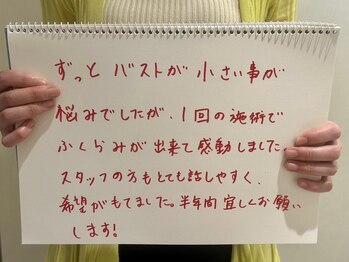 ずっと バストが 小さい事が
悩みでしたが、1回の施術で
ふくらみが出来て感動しました。
スタッフの方もとても話しやすく、
希望がもてました。半年間宜しくお願い
します!